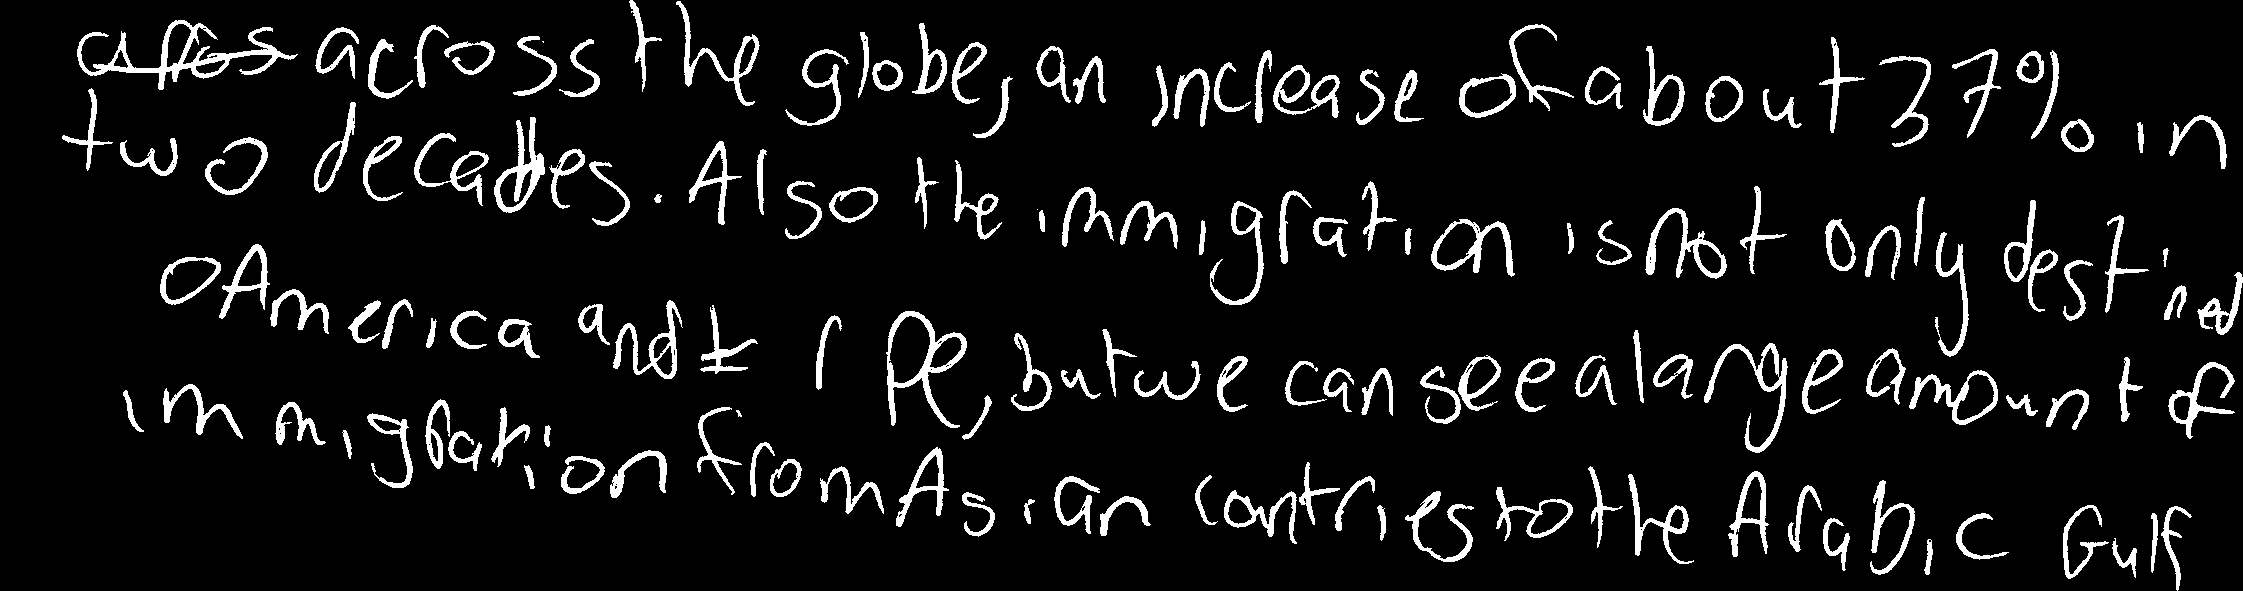 across the globe, an increase of about 37% in
two decades. Also the immigration is not only destined
America and but we can see a large amount of
immigration from Asian contries to the Arabic Gulf